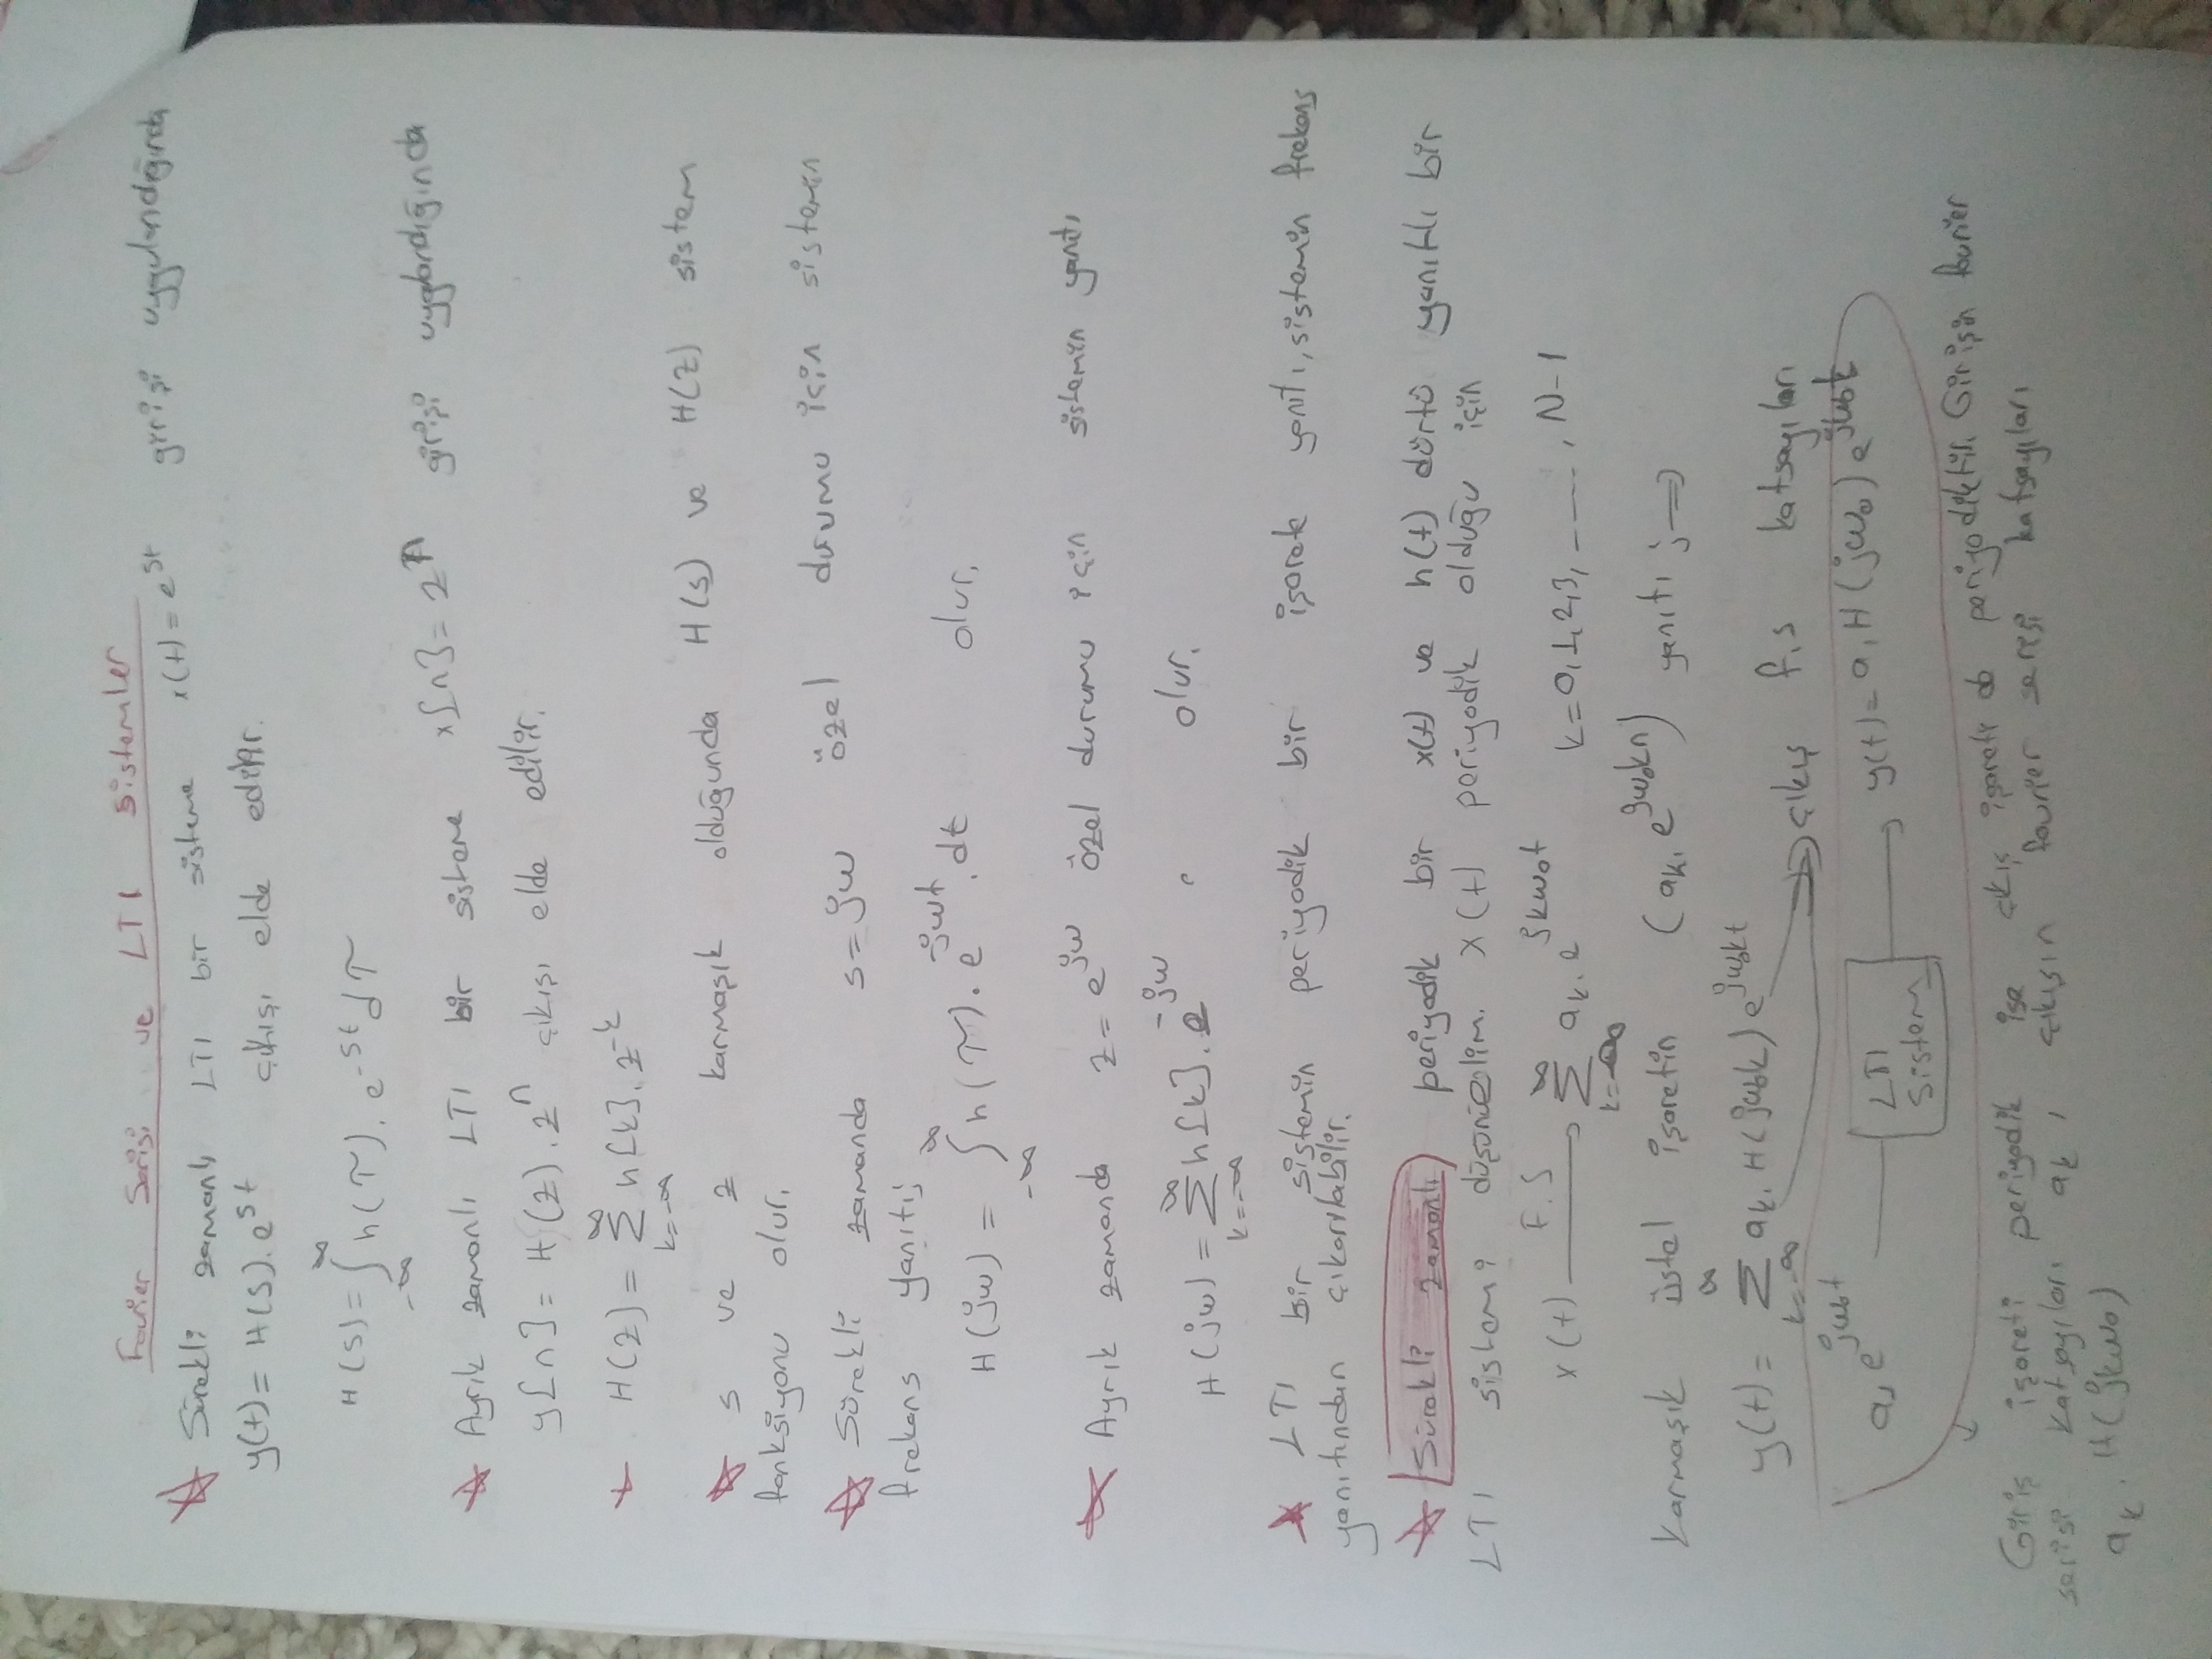 Fourier Serisi ve LTI Sistemler
Sürekli zamanlı LTI bir sisteme x(t) = e^st girişi uygulandığında
y(t) = H(s).e^st çıkışı elde edilir.
H(s) = ∫_-∞^∞ h(τ).e^-st dτ
Ayrık zamanlı LTI bir sisteme x[n] = z^n girişi uygulandığında
y[n] = H(z).z^n çıkışı elde edilir.
H(z) = ∑_k=-∞^∞ h[k].z^-k
s ve z karmaşık olduğunda H(s) ve H(z) sistem
fonksiyonu olur.
Sürekli zamanda s = jω özel durumu için sistemin
frekans yanıtı;
H(jω) = ∫_-∞^∞ h(τ).e^-jωt.dt olur.
Ayrık zamanda z = e^jω özel durumu için sistemin yanıtı
H(jω) = ∑_k=-∞^∞ h[k].e^-jω olur.
LTI bir sistemin periyodik bir işarete yanıtı, sistemin frekans
yanıtından çıkarılabilir.
Sürekli zamanlı periyodik bir x(t) ve h(t) dürtü yanıtlı bir
LTI sistemi düşünelim. x(t) periyodik olduğu için
x(t) F.S → ∑_k=-∞^∞ ak.e^jkω0t k=0,1,2,3,-----,N-1
Karmaşık üstel işaretin (ak.e^jω0kn) yanıtı ; ⇒
y(t) = ∑_k=-∞^∞ ak.H(jω0k)e^jω0kt → çıkış f.s katsayıları
a1 e^jω0t LTI Sistem → y(t) = a1H(jω0)e^jω0t
Giriş işareti periyodik ise çıkış işareti de periyodiktir. Girişin fourier
serisi katsayıları ak, çıkışın fourier serisi katsayıları
ak.H(jkω0)